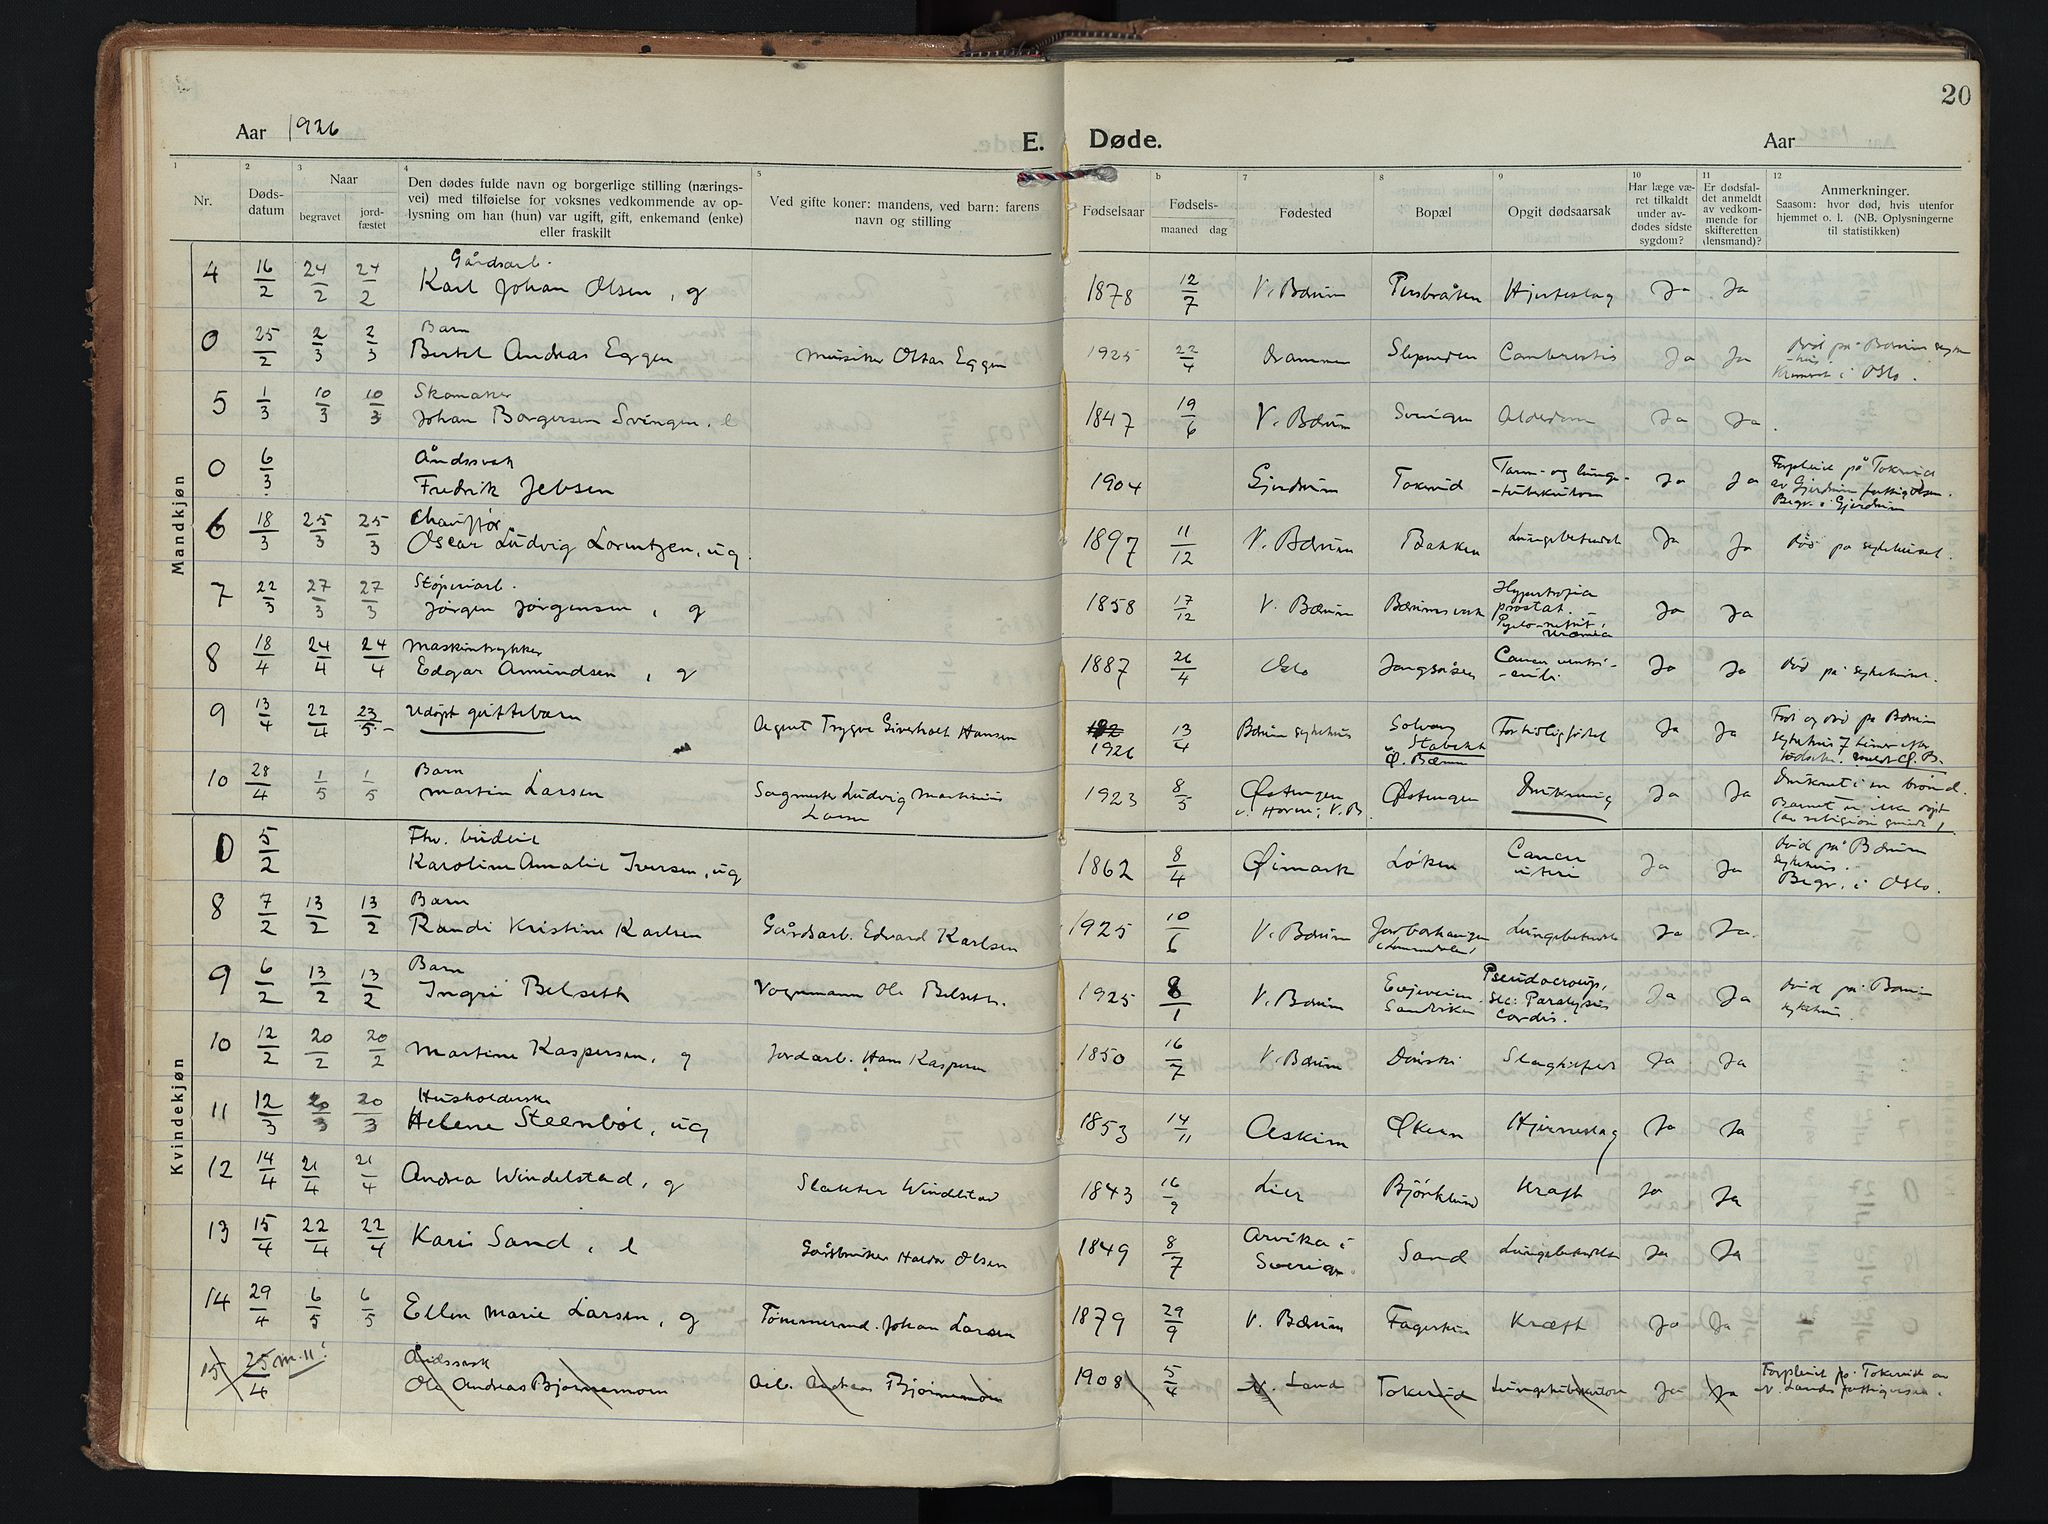 20
Aar 1926
E.
Døde.
Aar
1 2 3 4 5 6 7 8 9 10 11 12
Nr.
Døds-
datum
Naar
begravet
jord-
fæstet
Den dødes fulde navn og borgerlige stilling (nærings-
vei) med tilføielse for voksnes vedkommende av op-
lysning om han (hun) var ugift, gift, enkemand (enke)
eller fraskilt
Ved gifte koner: mandens, ved barn: farens
navn og stilling
Fødselsaar
Fødsels-
maaned dag
Fødested
Bopæl
Opgit dødsaarsak
Har læge væ-
ret tilkaldt
under av-
dødes sidste
sygdom?
Er dødsfal-
det anmeldt
av vedkom-
mende for
skifteretten
(lensmand)?
Anmerkninger.
Saasom: hvor død, hvis utenfor
hjemmet o. l. (NB. Oplysningerne
til statistikken)
Mandkjøn
Gårdsarb.
4 16/2 24/2 24/2 Karl Johan Olsen, g 1878 12/7 V. Bærum Hjerteslag Ja Ja
Barn
0 25/2 2/3 2/3 Bertel Andreas Eggen Eggen 1925 22/4 Drammen Slependen Ja Ja død på Bærum syke
-hus.
i Oslo.
Skomaker
5 1/3 10/3 10/3 Johan Borgersen Svingen, e 1847 19/6 V. Bærum Svingen Alderdom Ja Ja
Åndssvak
0 6/3 Fredrik Jebsen 1904 Gjerdrum Tokerud Tarm- og lunge-
-tuberkulose Ja Ja Forpleid på Tokerud
av Gjerdrum fattigvesen.
Begr. i Gjerdrum
Chauffør
6 18/3 25/3 25/3 Oscar Ludvig Lorentzen, ug. 1897 11/12 V. Bærum Bakken Lungebetændelse Ja Ja død på sykehuset.
Støperiarb.
7 22/3 27/3 27/3 Jørgen Jørgensen, g 1858 17/12 V. Bærum Bærumsverk Hypertrofia
prostat.
Pyelo-nefrit,
Uræmia Ja Ja
Maskintrykker
8 18/4 24/4 24/4 Edgar Amundsen, g 1887 26/4 Oslo Jongsåsen Cancer ventri-
-culi Ja Ja død på sykehuset.
9 13/4 22/4 23/5.- Udøpt guttebarn Agent Trygve Hansen 1926 13/4 Bærum sykehus Solvang
v. Stabekk
Ø. Bærum For tidlig født Ja Ja Født og død på Bærum
sykehus 7 timer efter
fødselen. Ø. B.
Barn
10 28/4 1/5 1/5 Martin Larsen Sagmester Ludvig Martinius
Larsen 1923 8/5 Østengen
V. B. Østengen Drukning Ja Ja Druknet i en brønd.
Barnet er ikke døpt
(av religiøse grunde)
Kvindekjøn
Fhv. budeie
0 5/2 Karoline Amalie Iversen, ug 1862 8/4 Øimark Løken Cancer
uteri Ja Ja død på Bærum
sykehus.
Begr. i Oslo.
Barn
8 7/2 13/2 13/2 Randi Kristine Karlsen Gårdsarb. Edvard Karlsen 1925 10/6 V. Bærum Lungebetændelse Ja Ja.
Barn
9 6/2 13/2 13/2 Ingri Belseth Vognmann Ole Belseth. 1925 8/1 V. Bærum Sandviken Pseudocroup,
sec: Paralysis
Cordis. Ja Ja død på Bærum
sykehus.
10 12/2 20/2 20/2 Martine Kaspersen, g Jordarb. Hans Kaspersen 1850 16/7 V. Bærum Dønski Slagtilfelde Ja Ja
Husholderske
11 12/3 20/3 20/3 Helene Steenbøl, ug 1853 14/11 Askim Økern Hjerneslag Ja Ja
12 14/4 21/4 21/4 Andrea Windelstad, g Slakter Windelstad 1843 16/9 Lier Bjørklund Kræft Ja Ja
13 15/4 22/4 22/4 Karin Sand, e Gårdbruker Halvor Olsen 1849 8/7 Arvika i
Sverige. Sand Lungebetændelse Ja Ja
14 29/4 6/5 6/5 Ellen Marie Larsen, g Tømmermd. Johan Larsen 1879 29/9 V. Bærum Kræft Ja Ja
Åndssvak
15 25/4 m. 11! Ole Andreas Bjørnemoen Arb. Andreas Bjørnemoen 1908 5/4 N. Land Tokerud Lungetuberkulose Ja Ja Forpleiet på Tokerud av
N. Lands fattigvesen.